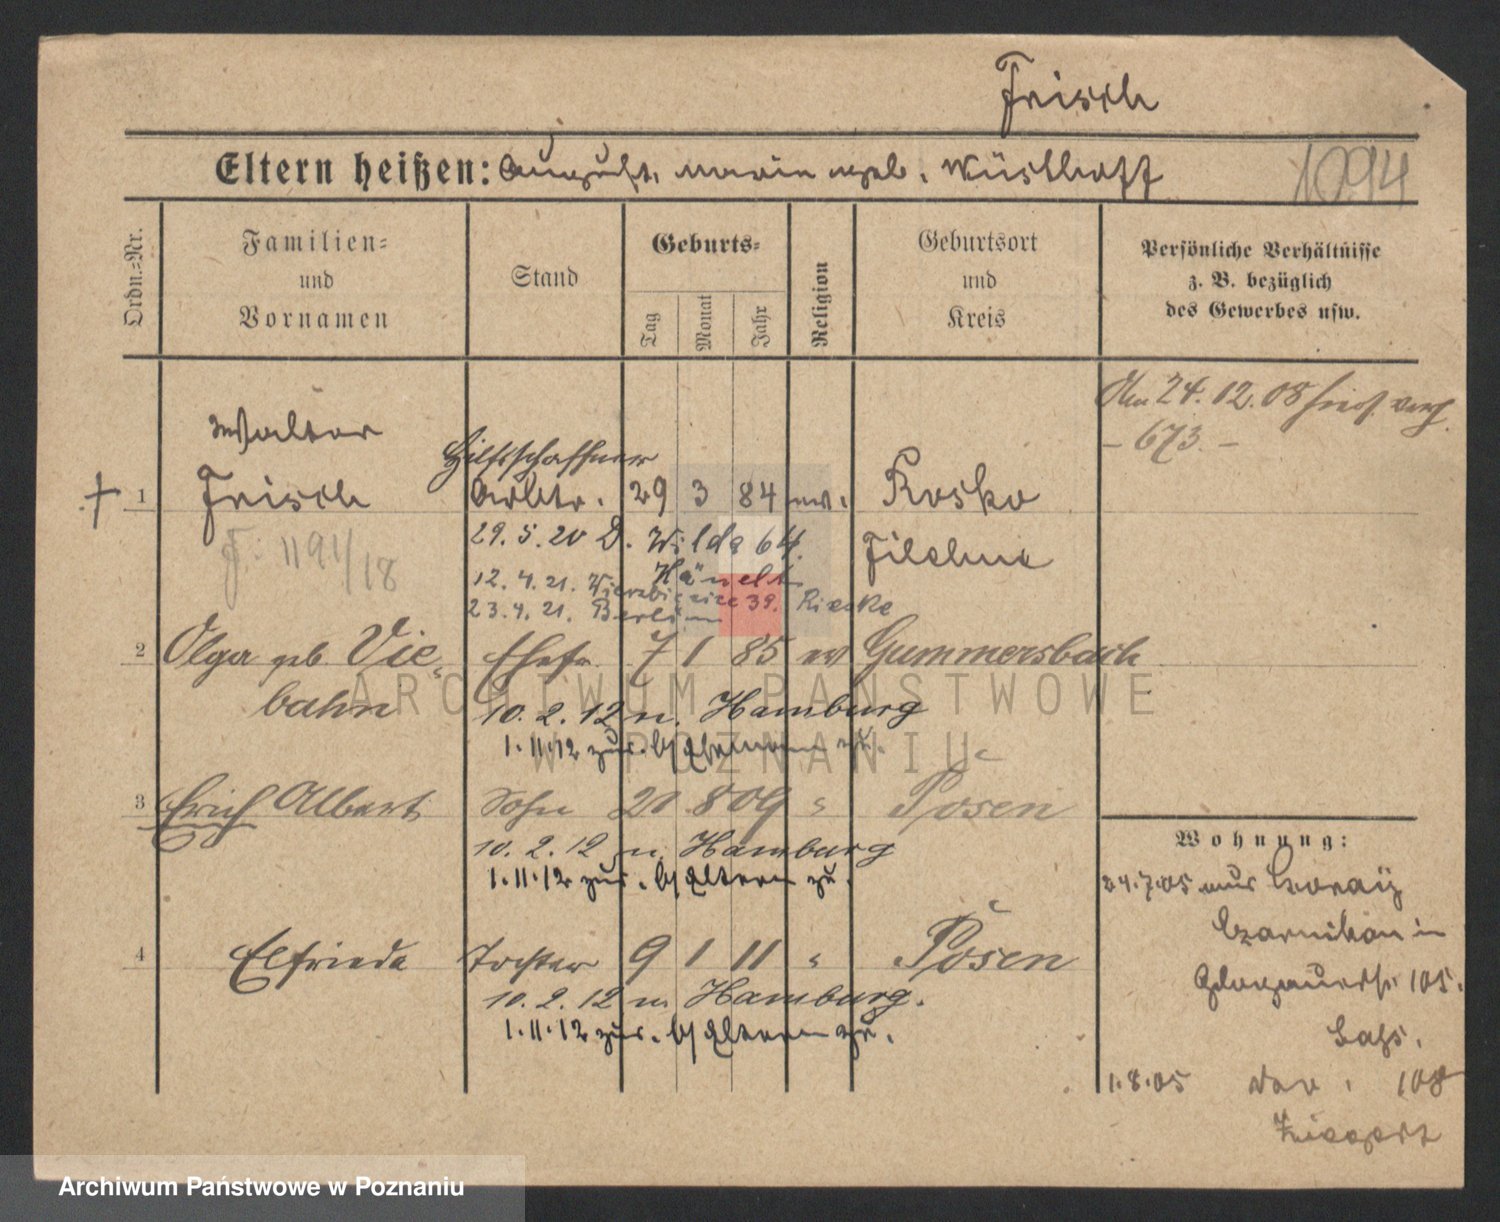 Frisch
Eltern heißen: August, Marie geb. Wüsthoff
1094
Ordn.=Nr.
Familien=
und
Vornamen
Stand
Geburts=
Tag
Monat
Jahr
Religion
Geburtsort
und
Kreis
Persönliche Verhältnisse
z. B. bezüglich
des Gewerbes usw.
Am 24.12.08 hier verh.
- 673 -
Walter
Hilfsschaffner
† 1 Frisch Arbtr. 29 3 84 ev. Rosko
29.5.20 D. Wilda 64. Filehne
F. 1191/18
Hänelt
12.4.21. 39. Rieske
23.4.21. Berlin
2 Olga geb. Vie- Ehefr. 7 1 85 ev Gummersbach
bahn 10.2.12 n. Hamburg
1.11.12 zur. b/ Ehemann zu.
3 Erich Albert Sohn 21 8 09 " Posen
10.2.12 n. Hamburg
1.11.12 zur. b/ Eltern zu.
4 Elfriede Tochter 9 1 11 " Posen
10.2.12 n. Hamburg.
1.11.12 zur. b/ Eltern zu.
Wohnung:
24.7.05 aus
Czarnikau in
Glogauerstr. 105.
1.8.05 108
ARCHIWUM PAŃSTWOWE
W POZNANIU
Archiwum Państwowe w Poznaniu